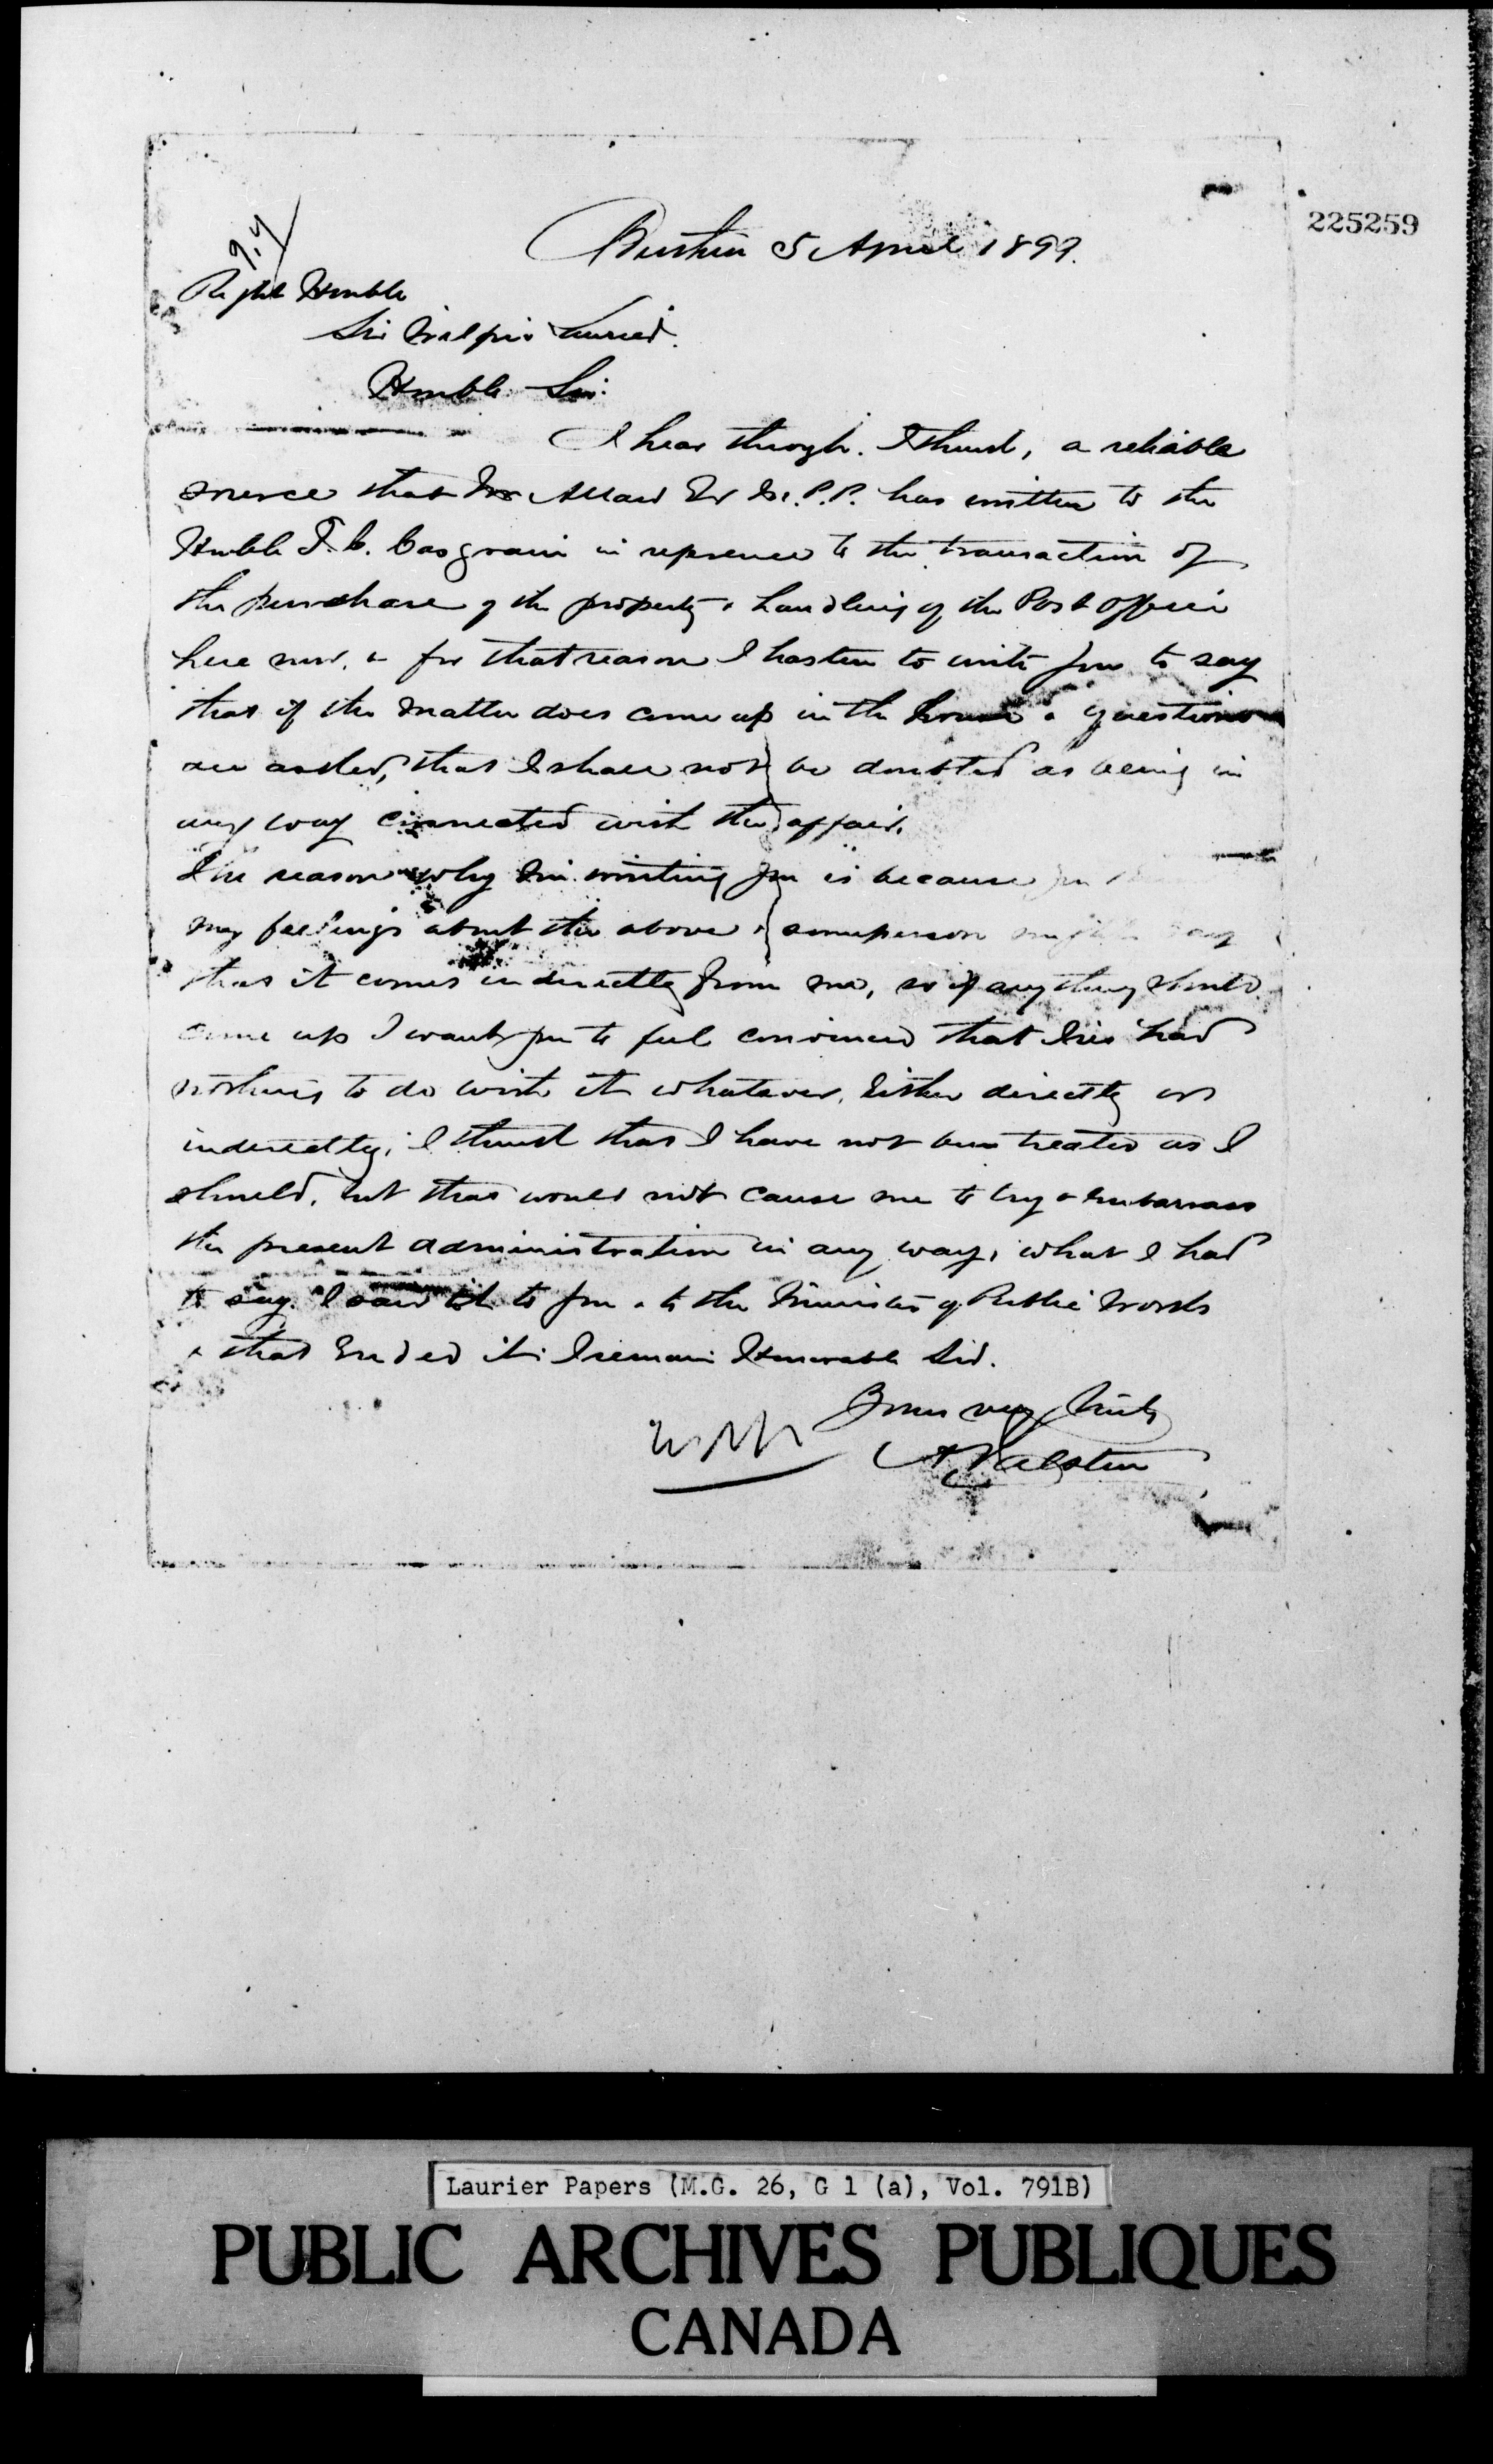 225259
Berthier 5 April 1899.
Right Honble
Sir Wilfrid Laurier.
Honble Sir:
I hear through. I think, a reliable
source that Mr Allard Ex M.P.P. has written to the
Honble T. C. Casgrain in reference to the transaction of
the purchase of the property & handling of the Post Office
here now, & for that reason I hasten to write you to say
that if the matter does come up in the house & questions
are asked, that I shall not be doubted as being in
any way connected with the affair.
The reason why I'm writing you is because you
my feelings about the above & some person might say
that it comes indirectly from me, so if anything should
come up I want you to feel convinced that I've had
nothing to do with it whatever, either directly or
indirectly, I think that I have not been treated as I
should, but that would not cause me to try & embarrass
the present administration in any way, what I had
to say I said it to you & to the Minister of Public Works
& that ended it. I remain Honorable Sir.
Yours very truly
A Ralston
Laurier Papers (M.G. 26, G 1 (a), Vol. 791B)
PUBLIC ARCHIVES PUBLIQUES
CANADA